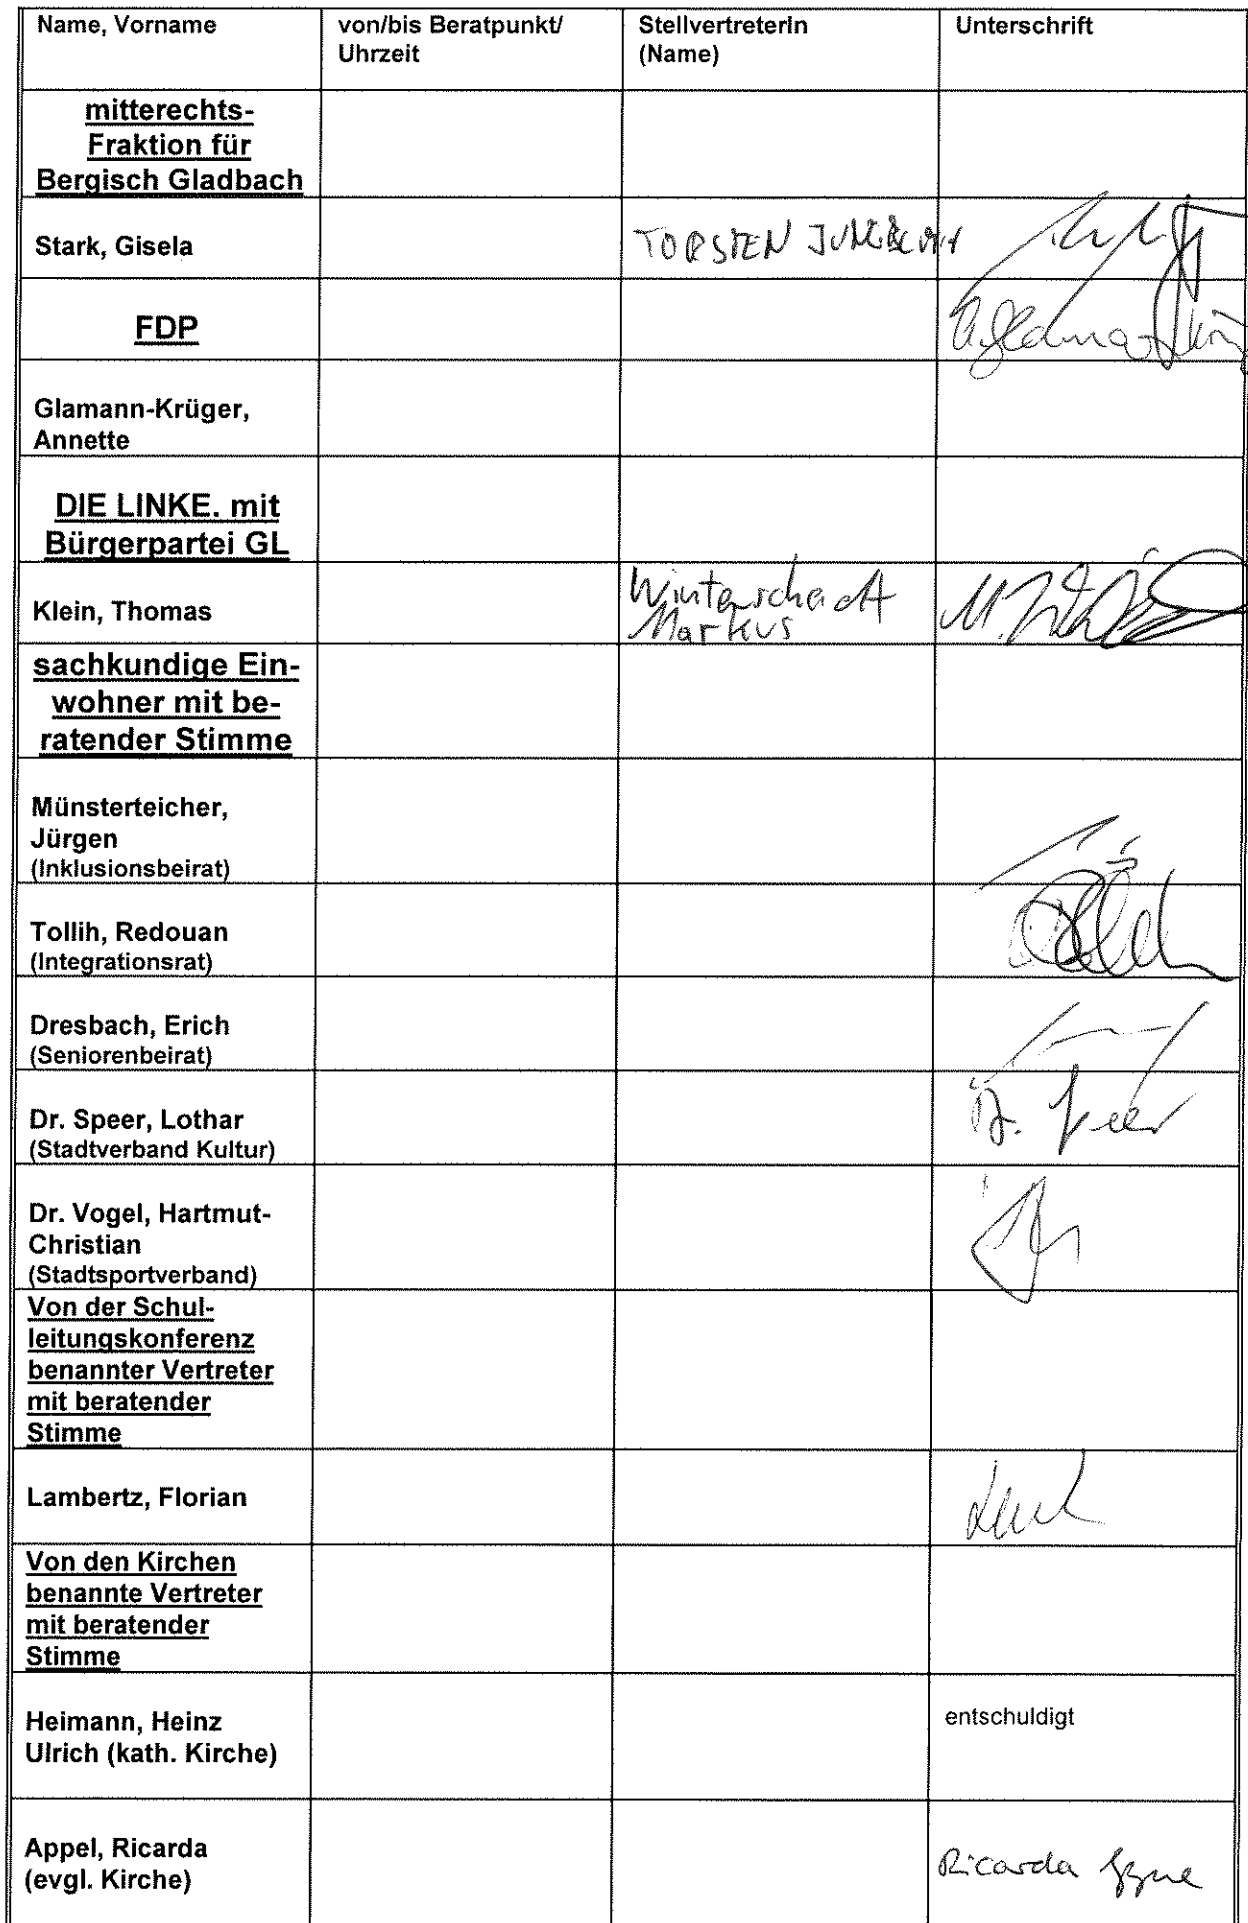 Name, Vorname
von/bis Beratpunkt/
Uhrzeit
StellvertreterIn
(Name)
Unterschrift
mitterechts-
Fraktion für
Bergisch Gladbach
Stark, Gisela
TORSTEN
FDP
Glamann-Krüger,
Annette
DIE LINKE. mit
Bürgerpartei GL
Klein, Thomas
Markus
sachkundige Ein-
wohner mit be-
ratender Stimme
Münsterteicher,
Jürgen
(Inklusionsbeirat)
Tollih, Redouan
(Integrationsrat)
Dresbach, Erich
(Seniorenbeirat)
Dr. Speer, Lothar
(Stadtverband Kultur)
Dr. Speer
Dr. Vogel, Hartmut-
Christian
(Stadtsportverband)
Von der Schul-
leitungskonferenz
benannter Vertreter
mit beratender
Stimme
Lambertz, Florian
Von den Kirchen
benannte Vertreter
mit beratender
Stimme
Heimann, Heinz
Ulrich (kath. Kirche)
entschuldigt
Appel, Ricarda
(evgl. Kirche)
Ricarda